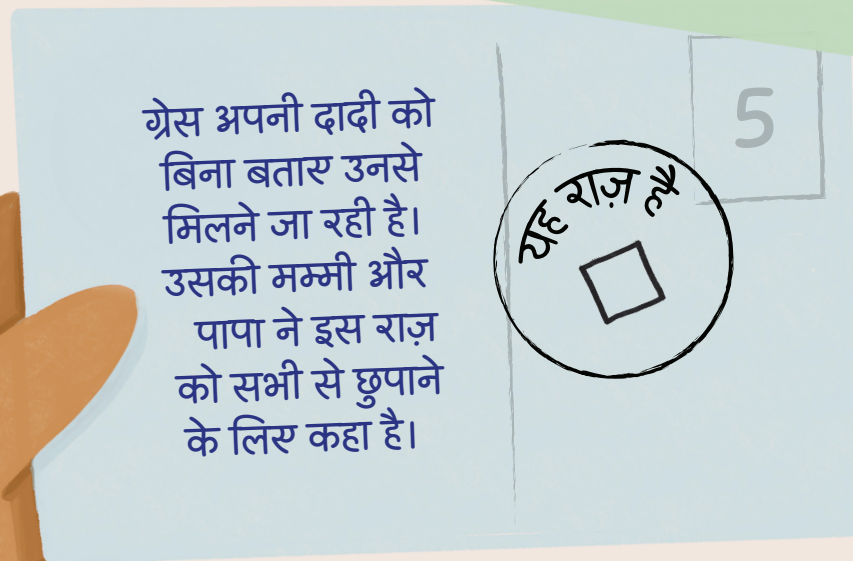 ग्रेस अपनी दादी को
बिना बताए उनसे
मिलने जा रही है।
उसकी मम्मी और
पापा ने इस राज़
को सभी से छुपाने
के लिए कहा है।
5
यह राज़ है